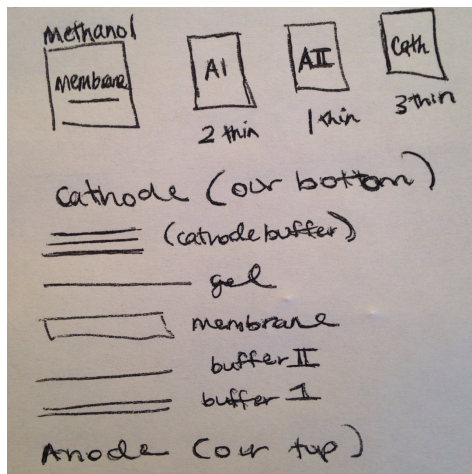 methanol
membrane
AI
AII
Cath
2 thin
1 thin
3 thin
Cathode (our bottom)
(cathode buffer)
gel
membrane
buffer II
buffer 1
Anode (our top)